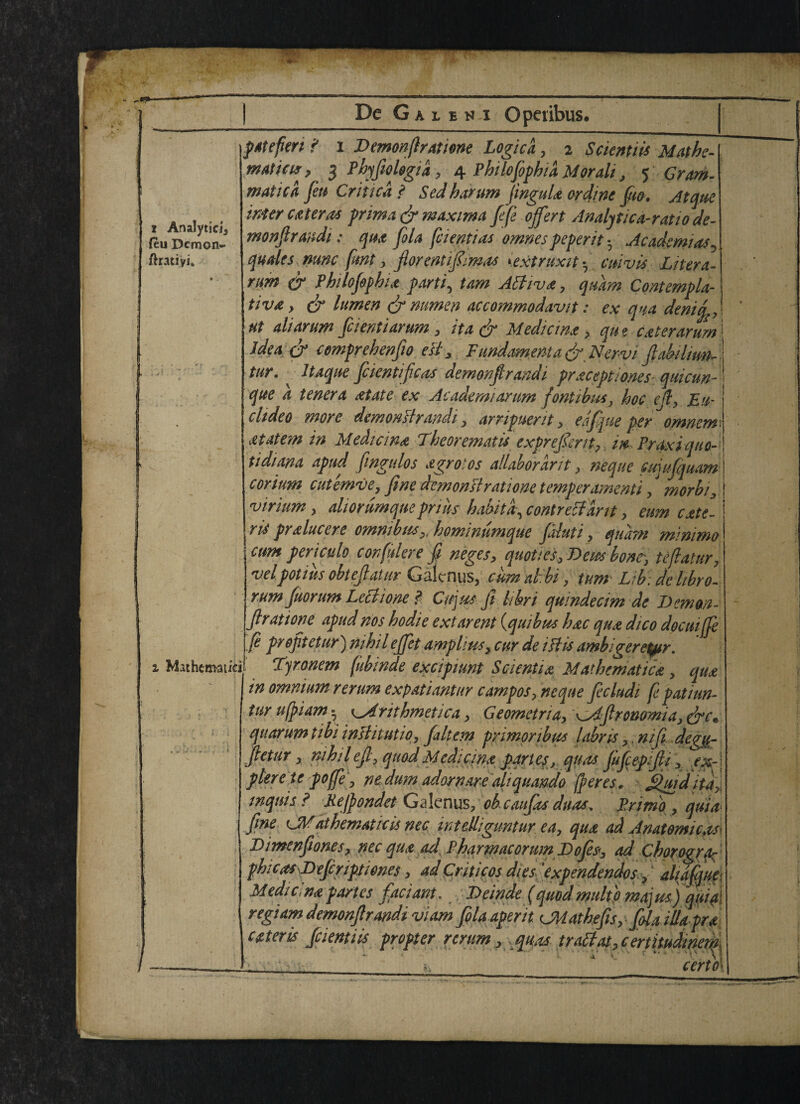 De GALENI Operibus.
patefieri? 1 Demonſtratione Logicâ, 2 Scientiis Mathe-
maticis, 3 Phyſiologiâ, 4 Philoſophiâ Morali, 5 Gram-
maticâ ſeu Criticâ? Sed harum ſingulæ ordine ſuo. Atque
1 Analytici,
ſeu Demon-
ſtrativi.
inter cæteras prima & maxima ſeſe offert Analytica-ratio de-
monſtrandi: quæ ſola ſcientias omnes peperit; Academias,
quales nunc ſunt, florentiſſimas extruxit; cuivis Litera-
rum & Philoſophiæ parti, tam Activæ, quàm Contempla-
tivæ, & lumen & numen accommodavit: ex qua deniq;,
ut aliarum ſcientiarum, ita & Medicinæ, quæ cæterarum
Idea & comprehenſio eſt, Fundamenta & Nervi ſtabiliun-
tur. Itaque ſcientificas demonſtrandi præceptiones quicun-
que à tenera ætate ex Academiarum fontibus, hoc eſt, Eu-
clideo more demonſtrandi, arripuerit, eáſque per omnem
ætatem in Medicinæ Theorematis expreſſerit, in Praxi quo-
tidiana apud ſingulos ægrotos allaborârit, neque cujuſquam
corium cutémve, ſine demonſtratione temperamenti, morbi,
virium, aliorúmque priùs habitâ, contrectârit, eum cæte-
ris prælucere omnibus, hominúmque ſaluti, quàm minimo
cum periculo conſulere ſi neges, quoties, Deus bone, teſtatur,
vel potiùs obteſtatur Galenus, cùm alibi, tum Lib. de libro-
rum ſuorum Lectione? Cujus ſi libri quindecim de Demon-
ſtratione apud nos hodie extarent (quibus hæc quæ dico docuiſſe
ſe profitetur) nihil eſſet amplius, cur de iſtis ambigeretur.
2 Mathematici
Tyronem ſubinde excipiunt Scientiæ Mathematicæ, quæ
in omnium rerum expatiantur campos, neque ſecludi ſe patiun-
tur uſpiam; Arithmetica, Geometria, Aſtronomia, &c.
quarum tibi inſtitutio, ſaltem primoribus labris, niſi degu-
ſtetur, nihil eſt, quod Medicinæ partes, quas ſuſcepiſti, ex-
plere te poſſe, ne dum adornare aliquando ſperes. Quid ita,
inquis? Reſpondet Galenus, ob cauſas duas. Primò, quia
ſine Mathematicis nec intelliguntur ea, quæ ad Anatomicas
Dimenſiones, nec quæ ad Pharmacorum Doſes, ad Chorogra-
phicas Deſcriptiones, ad Criticos dies expendendos, aliáſque
Medicinæ partes faciant. Deinde (quod multò majus) quia
regiam demonſtrandi viam ſola aperit Matheſis, ſola illa præ
cæteris ſcientiis propter rerum, quas tractat, certitudinem
certò